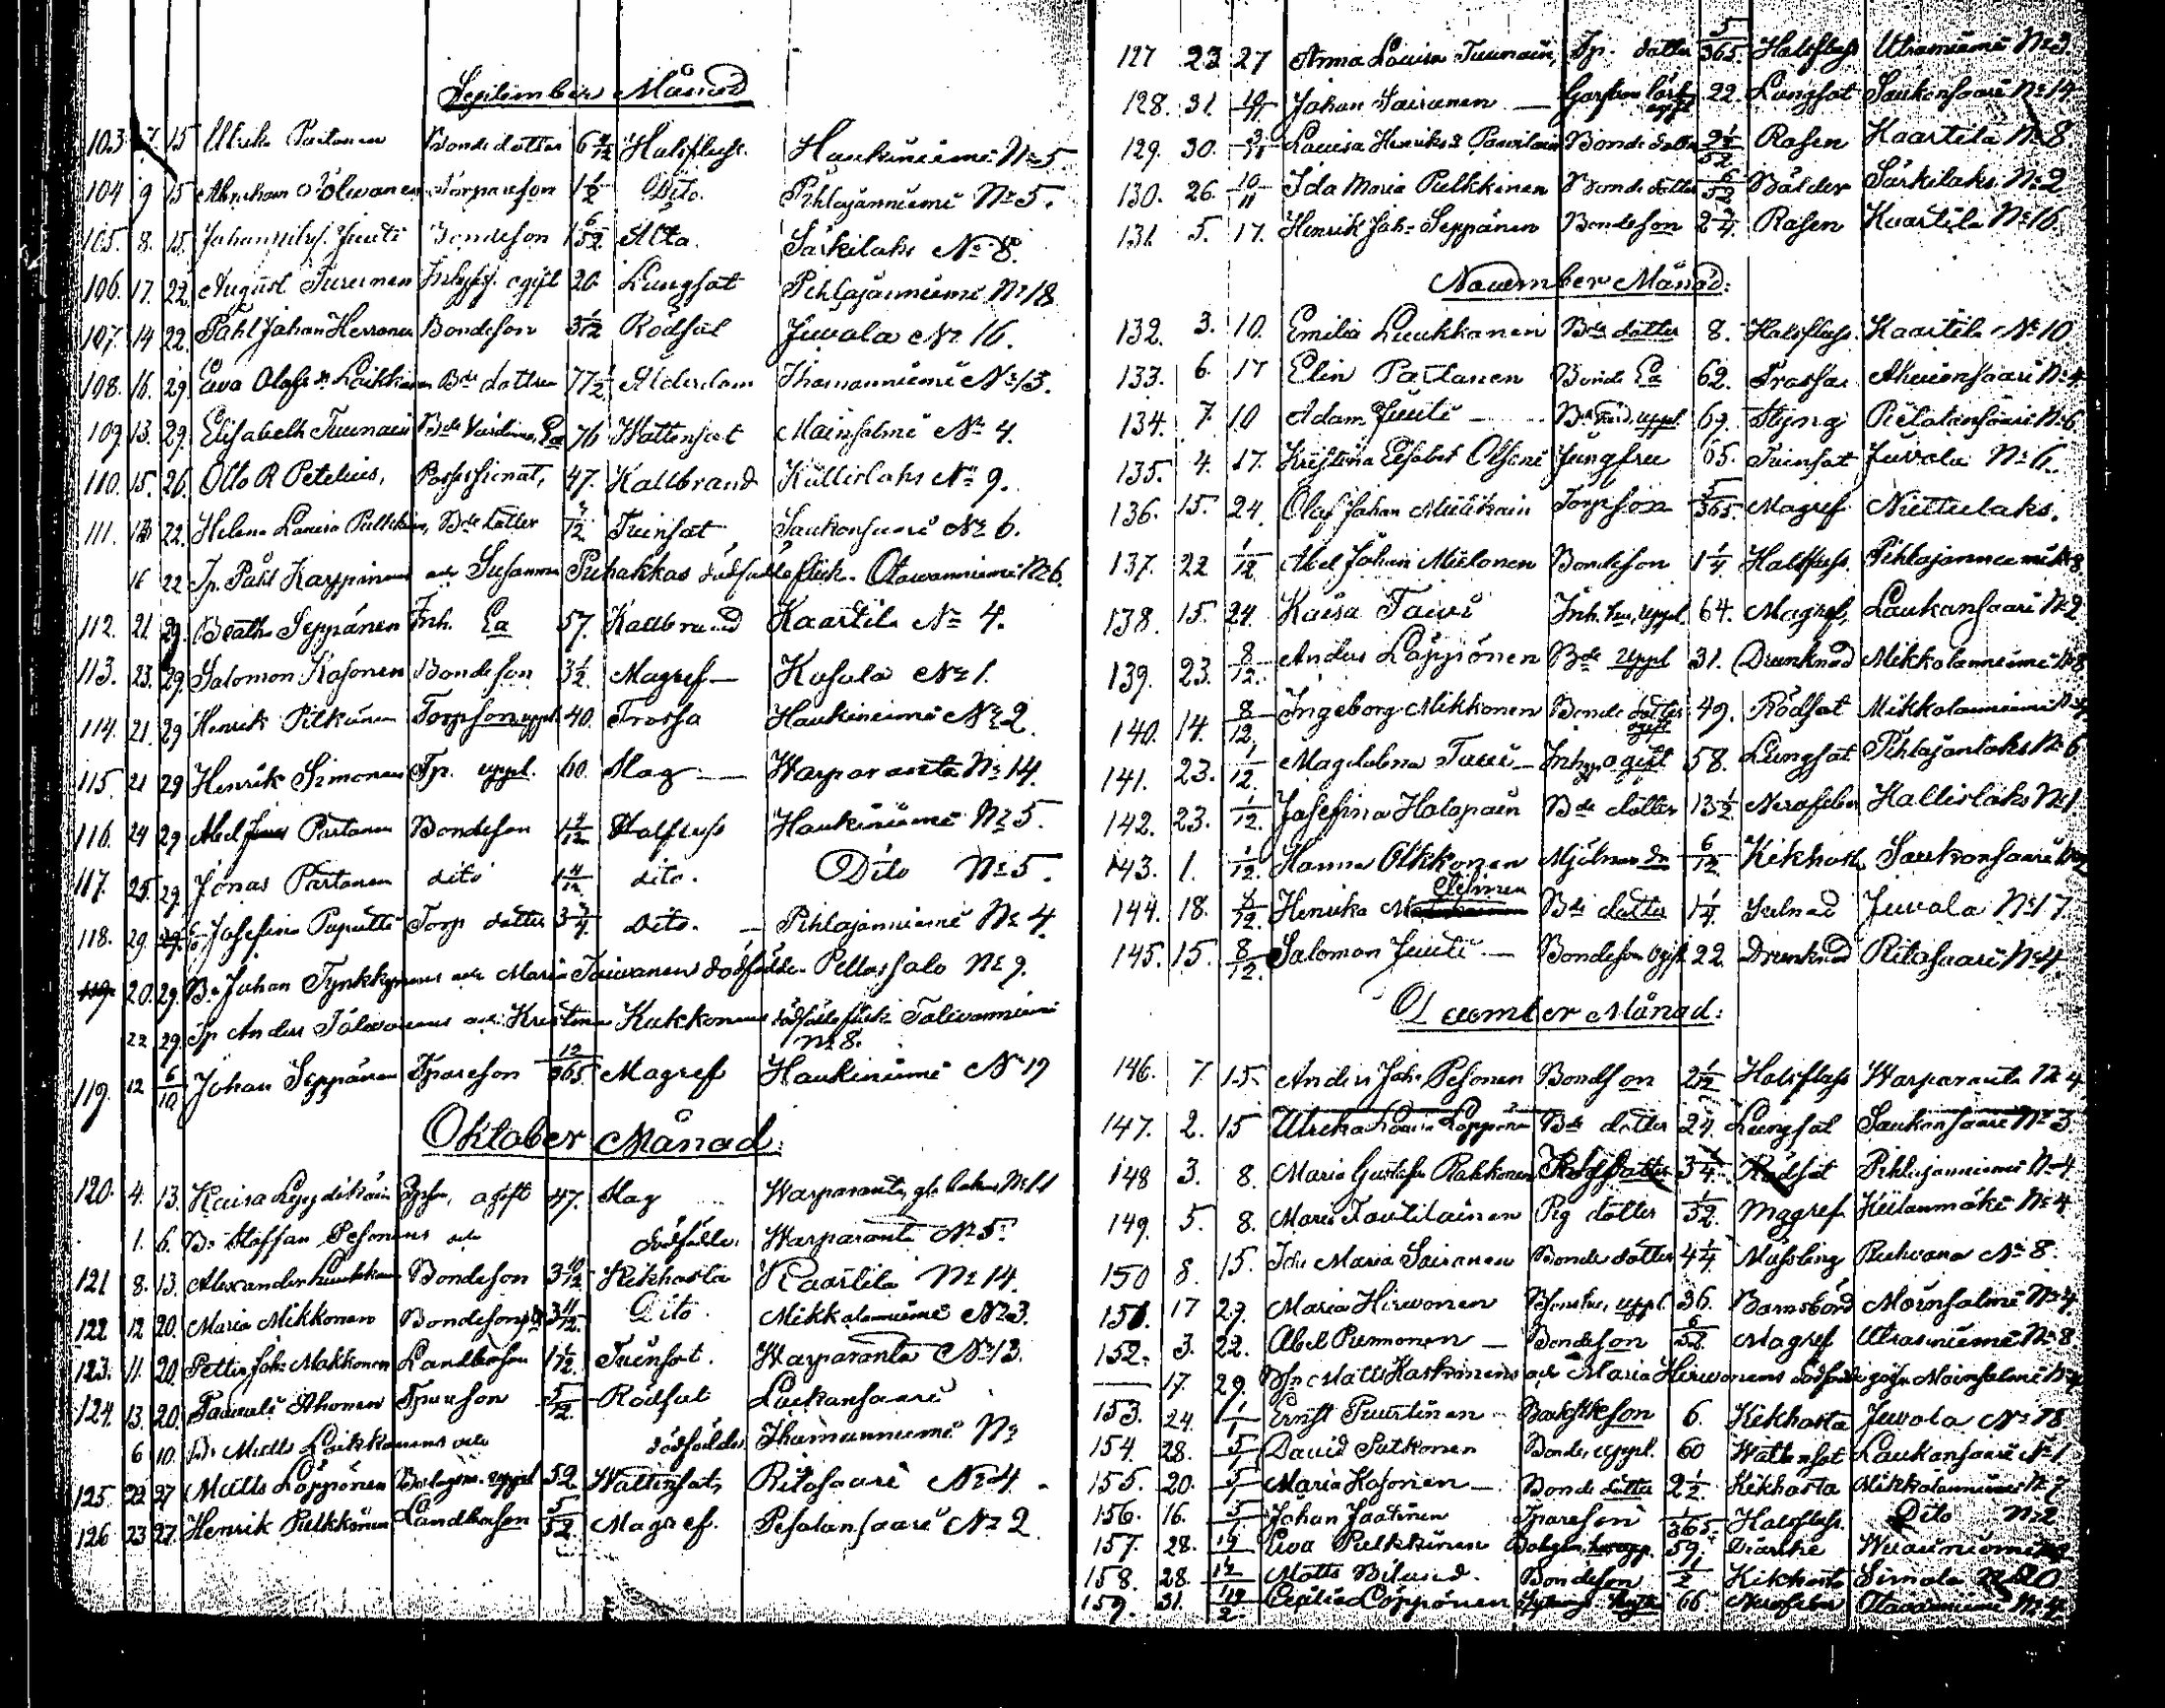 September Månad
103. 7 15 Ulrika Partanen Bonde dotter 6 4/12 Halsfluss. Haukiniemi No 5.
104 9 15 Abraham Tolwanen Torpareson 1 1/2 Dito. Pihlajanniemi No 5.
105. 8. 15. Johan Juuti Bondeson 6/52 Alta. Särkilaks No 8.
106. 17. 22. August Turunen ogift 20. Lungsot Pihlajanniemi No 18
107. 14 22. Påhl Johan Herranen Bondeson 3 1/12 Rödsot Juvola No 16.
108. 16. 29. Ewa Olofs dr Laikkanen Bde dotter 77 1/2 Ålderdom Ihamanniemi No 13.
109. 13. 29. Elisabeth Tuunain Bde Ea 76 Wattensot Moinsalmi No 4.
110. 15. 26. Otto R Petelius, Possessionat, 47. Kallbrand Kallislaks No 9.
111. 22. Helena Lovisa Pulkkin, Bde dotter 3/12 Tvinsot Saukonsaari No 6.
16 22 Tp. Påhl Karppinens och Susanna Puhakkas dödfödde flick. Otawanniemi No 6.
112. 21. 29. Beatha Seppänen Inh. Ea 57. Kallbrand Kaartila No 4.
113. 23. 29. Salomon Kosonen Bondeson 3 1/2. Magref — Kosola No 1.
114. 21. 29 Henrik Pitkänen Torpson uppl 40. Trossa Haukiniemi No 2
115. 21 29 Henrik Simonen Tp. uppl. 60. Slag — Warparanta No 14.
116. 24 29 Abel Partanen Bondeson 1 4/12 Halsfluss Haukiniemi No 5.
117. 25. 29. Jonas Partanen dito 1 4/12 dito. Dito No 5.
118. 29 Josefina Paputti Torp dotter 3 3/4 dito. — Pihlajanniemi No 4.
20. 29. B. Johan Tynkkynens och Maria Toiwanens dödfödde Pellossalo No 9.
22 29. Tp Anders Tolwanens och Kristina Kukkonens dödfödde flick Tolwanniemi
No 8.
119. 12 6/10 Johan Seppänen Tpareson 12/365 Magref Haukiniemi No 19
Oktober Månad:
120. 4. 13. Kaisa Lyydikäin ogift 47. Slag Warparanta No 11
1. 6. B. Staffan Pesonens och dödfödde. Warparanta No 5.
121 8. 13. Alexander Luukkanen Bondeson 3 10/12 Kikhosta Kaartila No 14.
122 12 20. Maria Mikkonen 3 11/12. Dito. Mikkolanniemi No 3.
123. 11. 20. Petter Joh. Makkonen Landbonson 1 1/12. Tvinsot. Warparanta No 13.
124. 13. 20. Taavali Ahonen Tpareson 5/12. Rödsot Laukansaari
6 10. Bo Matts Laikkanens och dödfödde Ihamanniemi No
125. 22 27 Matts Löppönen Bolagsm. uppl 52 Wattensot, Ritosaari No 4.
126 23 27. Henrik Pulkkinen Landbonson 5/52. Magref. Pesolansaari No 2
127 23 27 Anna Lovisa Tuunain, Tp. dotter 5/365. Halsfluss Utrasniemi No 3.
128. 31. 10/11 Johan Sairanen — 22. Lungsot Saukonsaari No 14
129. 30. 3/11 Lovisa Henriks dr Parvilain Bonde dotter 21/52 Rosen Kaartila No 8
130. 26. 10/11 Ida Maria Pulkkinen Bonde dotter 6/52 Bölder Särkilaks No 2
131. 5. 17. Henrik Joh. Seppänen Bondeson 2 3/4. Rosen Kaartila No 16.
November Månad:
132. 3. 10. Emilia Luukkanen Bde dotter 8. Halsfluss. Kaartila No 10
133. 6. 17 Elin Partanen Bonde Ea 62. Trossa Ahvionsaari No 4.
134. 7. 10 Adam Juuti — uppl. 69. Styng Pietolansaari No 6
135. 4. 17. Kristina Elisabet Olsoni Jungfru 65. Tvinsot Juvola No 6.
136. 15. 24. Olof Johan Miilikain Torpson 5/365. Magref Niittulaks.
137. 22 1/12 Abel Johan Mielonen Bondeson 1 1/4 Halsfluss. Pihlajanniemi No 8
138. 15. 24. Kaisa Taivi Inh. uppl 64. Magref, Laukansaari No 2
139. 23. 8/12. Anders Löppönen Bde uppl 31. Drunknad Mikkolanniemi No 8
140. 14. 8/12. Ingeborg Mikkonen Bonde dotter ogift 49. Rödsot Mikkolanniemi No
141. 23. 1/12. Magdalena Taivi — ogift 58. Lungsot Pihlajanlaks No 6
142. 23. 1/12. Josefina Halapain Bde dotter 13 1/2. Nervfeber Kallislaks No 1
143. 1. 1/12. Hanna Olkkonen Mjölnar dr 6/12. Kikhosta Saukonsaari No
144. 18. 8/12 Henrika Bde dotter 1 1/4. Juvola No 17.
145. 15. 8/12. Salomon Juuti — Bondeson ogift 22. Drunknad Ritosaari No 4.
December Månad:
146. 7. 15. Anders Joh. Pesonen Bondson 2 1/12 Halsfluss Warparanta No 4
147. 2. 15 Ulrika Lovisa Löppönen Bde dotter 24. Lungsot Saukonsaari No 3.
148 3. 8. Maria Gustafva Makkonen 3 1/4. Rödsot Pihlajanniemi No 4
149. 5. 8. Maria Tautilainen Pig dotter 1/52. Magref Kiilanmäki No 4.
150 8. 15. Ida Maria Sairanen Bonde dotter 4 1/4 Mässling Ruhvana No 8.
151. 17 29. Maria Hirwonen uppl. 36. Barnsbörd Moinsalmi No 4
152. 3. 22. Abel Purmonen — Bondeson 6/52. Magref Utrasniemi No 8
— 17. 29. Matts Kaskinens och Maria Hirwonens dödfödde gosse Moinsalmi No
153. 24. 1/1 Ernst Puurtinen 6. Kikhosta Juvola No 18
154. 28. 5/1 David Putkonen Bonde uppl. 60 Wattensot Laukansaari No 1
155. 20. 5/1 Maria Kosonen — Bonde dotter 2 1/2. Kikhosta Mikkolanniemi No 7
156. 16. 5/1 Johan Jaatinen Tpareson 1/365. Halsfluss. Dito No 2
157. 28. Ewa Pulkkinen 59. Diarrhe
158. 28. Matts Bilund. Bondeson 1/2 Kikhosta Simola No 20
159. 31. Cecilia Löppönen 66 Nervfeber Otawanniemi No 4.